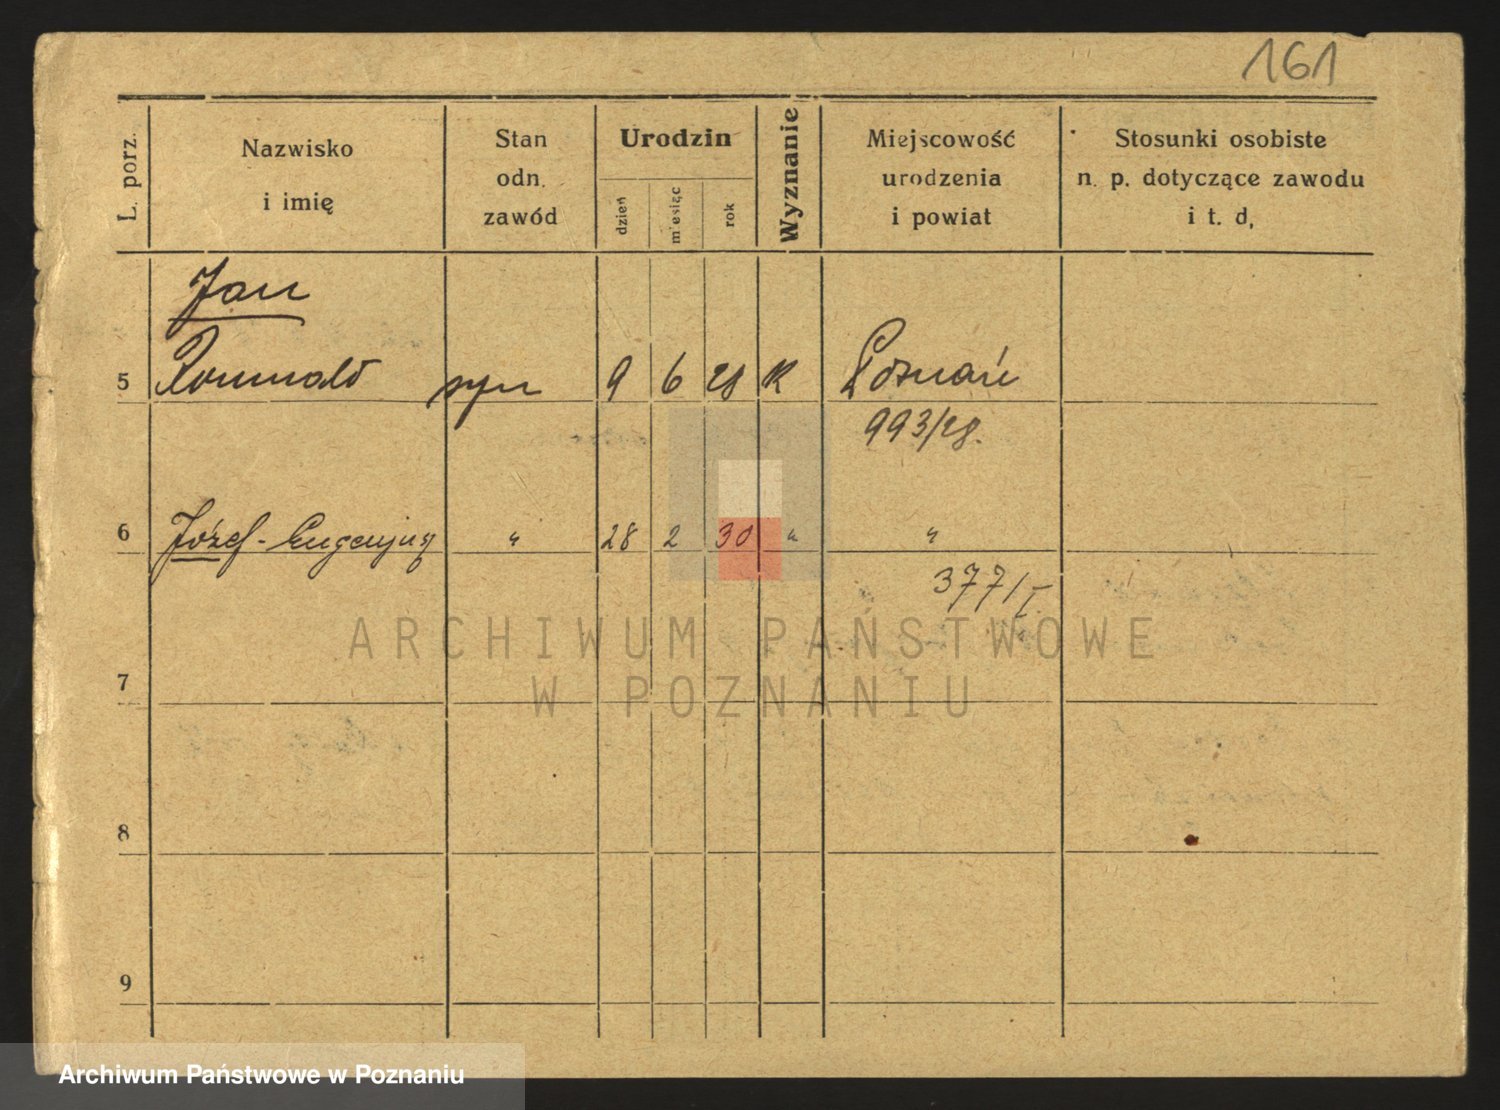 161
L. porz.
Nazwisko
i imię
Stan
odn.
zawód
Urodzin
dzień
miesiąc
rok
Wyznanie
Miejscowość
urodzenia
i powiat
Stosunki osobiste
n. p. dotyczące zawodu
i t. d,
Jan
5 Romuald syn 9 6 28 K Poznań
993/28.
6 Józef-Eugenjusz " 28 2 30 " "
377/I.
ARCHIWUM PAŃSTWOWE
W POZNANIU
7
8
9
Archiwum Państwowe w Poznaniu